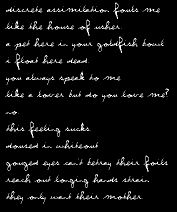 discrete assimilation fouls me
like the house of usher
a pet here in your goldfish bowl
i float here dead.
you always speak to me
like a lover but do you love me?
no.
this feeling sucks.
doused in whiteout
gouged eyes can't betray their foils
reach out longing hands strain
they only want their mother.